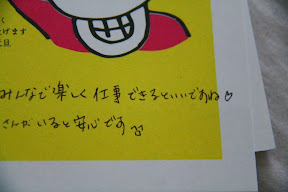 く
げます
みんなで楽しく仕事できるといいですね♡
さんがいると安心です♪